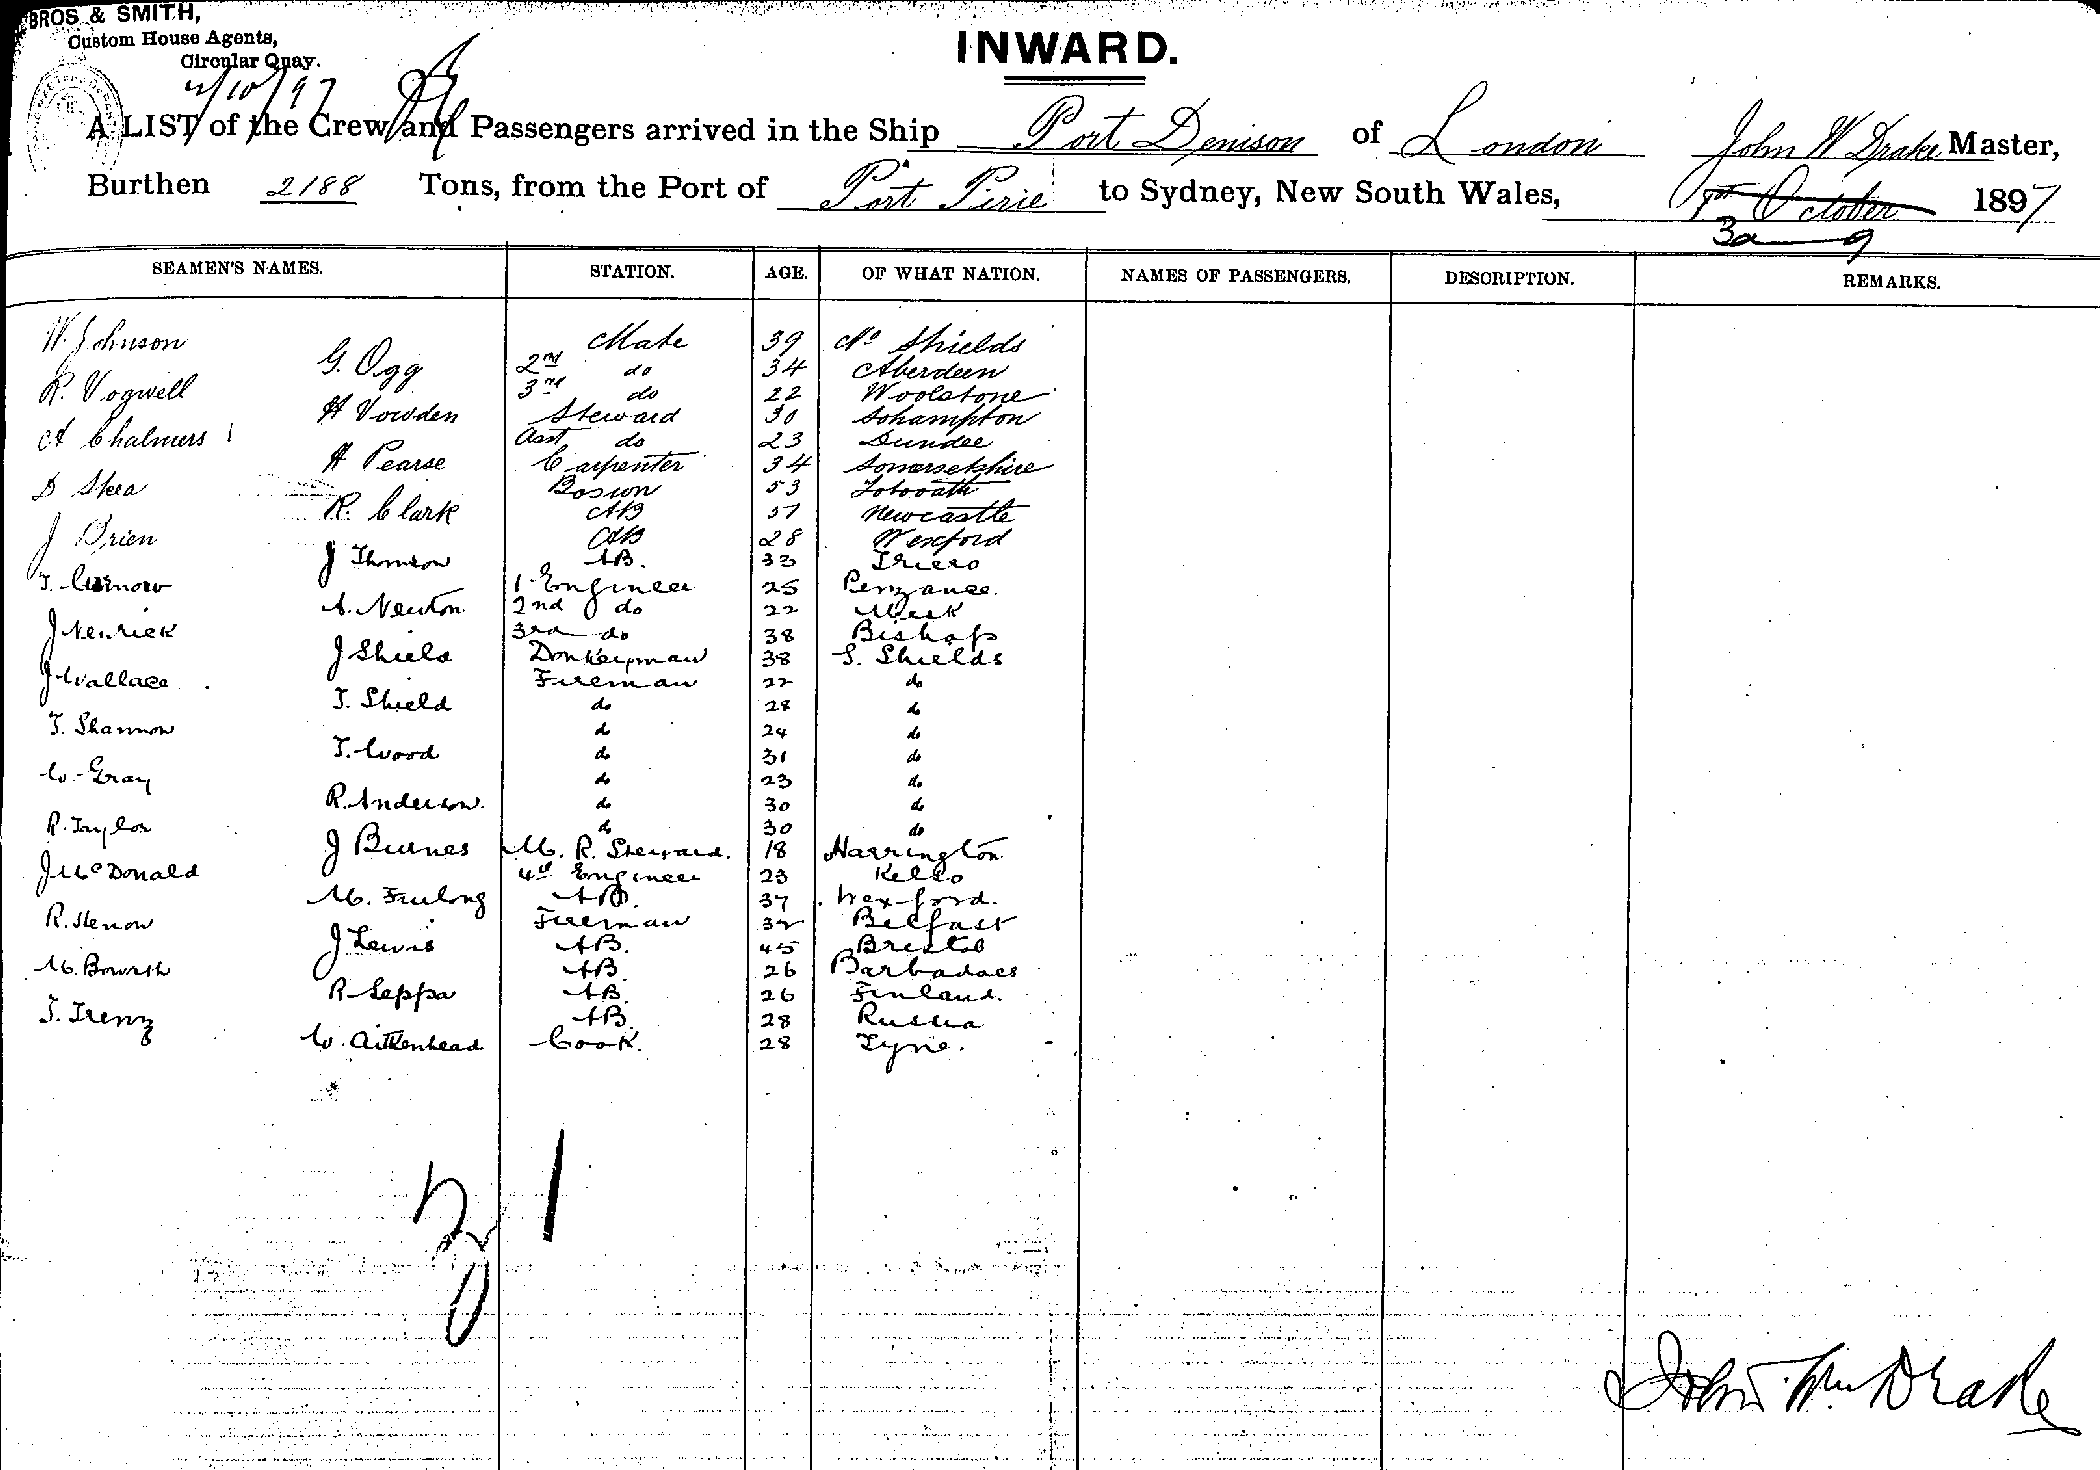 BROS & SMITH,
Custom House Agents,
Circular Quay.
INWARD.
4/10/97
A LIST of the Crew and Passengers arrived in the Ship Port Denison of London John W Drake Master,
Burthen 2188 Tons, from the Port of Port Pirie to Sydney, New South Wales, October 1897
SEAMEN'S NAMES. STATION. AGE. OF WHAT NATION. NAMES OF PASSENGERS. DESCRIPTION. REMARKS.
W. Johnson Mate 39 No Shields
G. Ogg 2nd do 34 Aberdeen
R. Vogwell 3rd do 22 Woolstone
H Vowden Steward 30 Sohampton
A Chalmers Asst do 23 Dundee
H Pearse Carpenter 34 Somersetshire
D Shea Bosun 53
R. Clark AB 57 Newcastle
J Brien AB 28 Wexford
J Thomson AB. 33
T. Curnow 1 Engineer 25 Penzance.
A. Newton 2nd do 22
J Nenrick 3rd do 38 Bishop
J Shield Donkeyman 38 S. Shields
J Wallace Fireman 22 do
T. Shield do 28 do
T. Shannon do 24 do
T. Wood do 31 do
W. Gray do 23 do
R. Anderson. do 30 do
R. Taylor do 30 do
J Burnes M. R. Steward. 18 Harrington
J McDonald 4th Engineer 23 Kelso
M. Furlong AB. 37 Wexford.
R. Stenow Fireman 32 Belfast
J Lewis AB. 45 Bristol
M. Bowrth AB. 26 Barbadoes
R Seppa AB. 26 Finland.
T. Trenz AB. 28 Russia
W. Aitkenhead Cook. 28 Tyne.
John Wm Drake